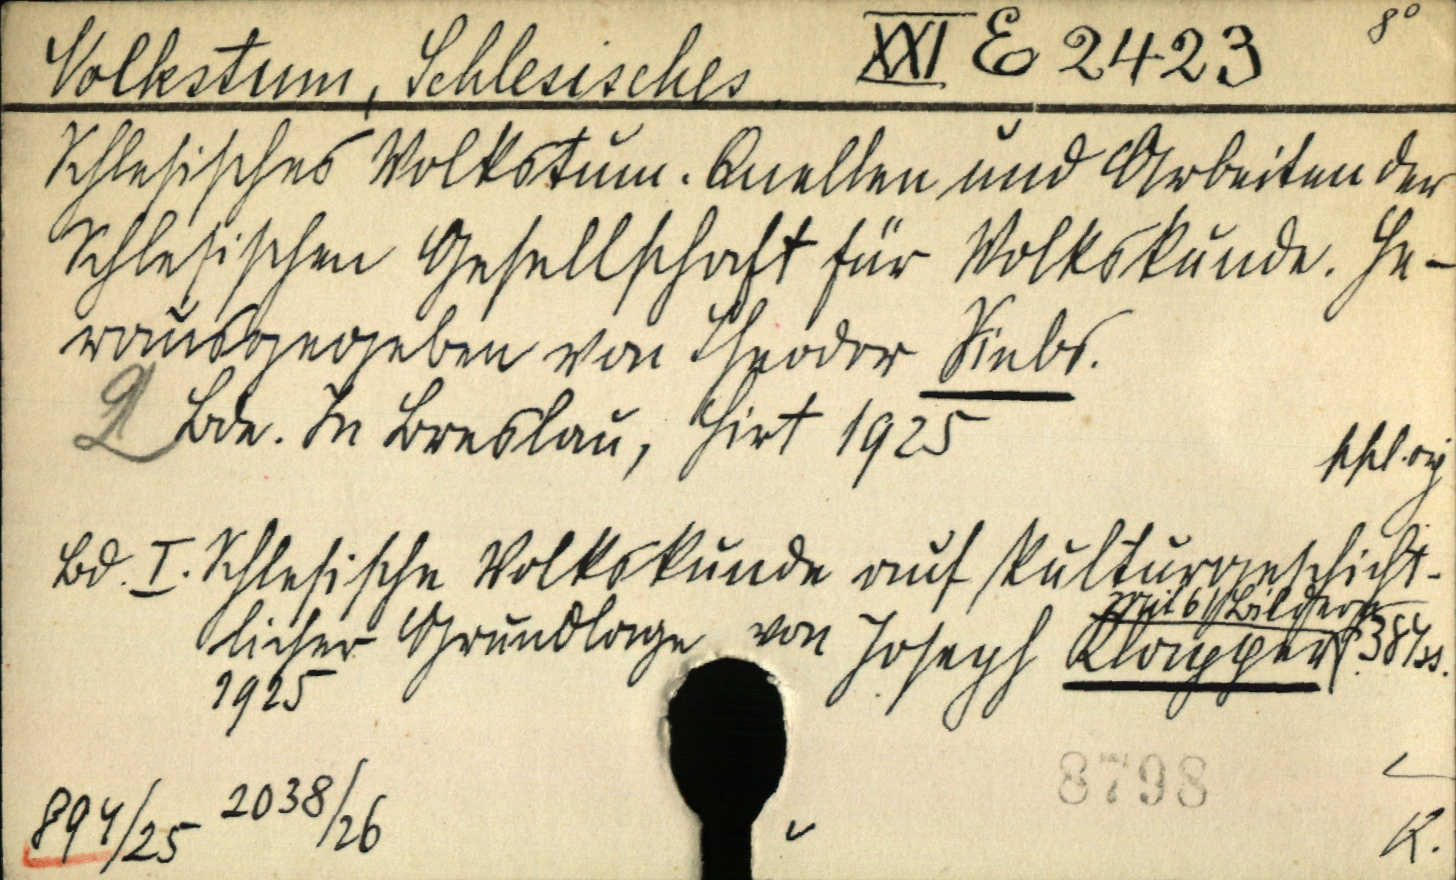 Volkstum, Schlesisches XXI E 2423 8°
Schlesisches Volkstum. Quellen und Arbeiten der
Schlesischen Gesellschaft für Volkskunde. He-
rausgegeben von Theodor Siebs.
2 Bde. In Breslau, Hirt 1925
Bd. I. Schlesische Volkskunde auf kulturgeschicht-
Mit 61 Bildern
licher Grundlage von Joseph Klapper. 387 ss.
1925
8798
894/25 2038/26
K.